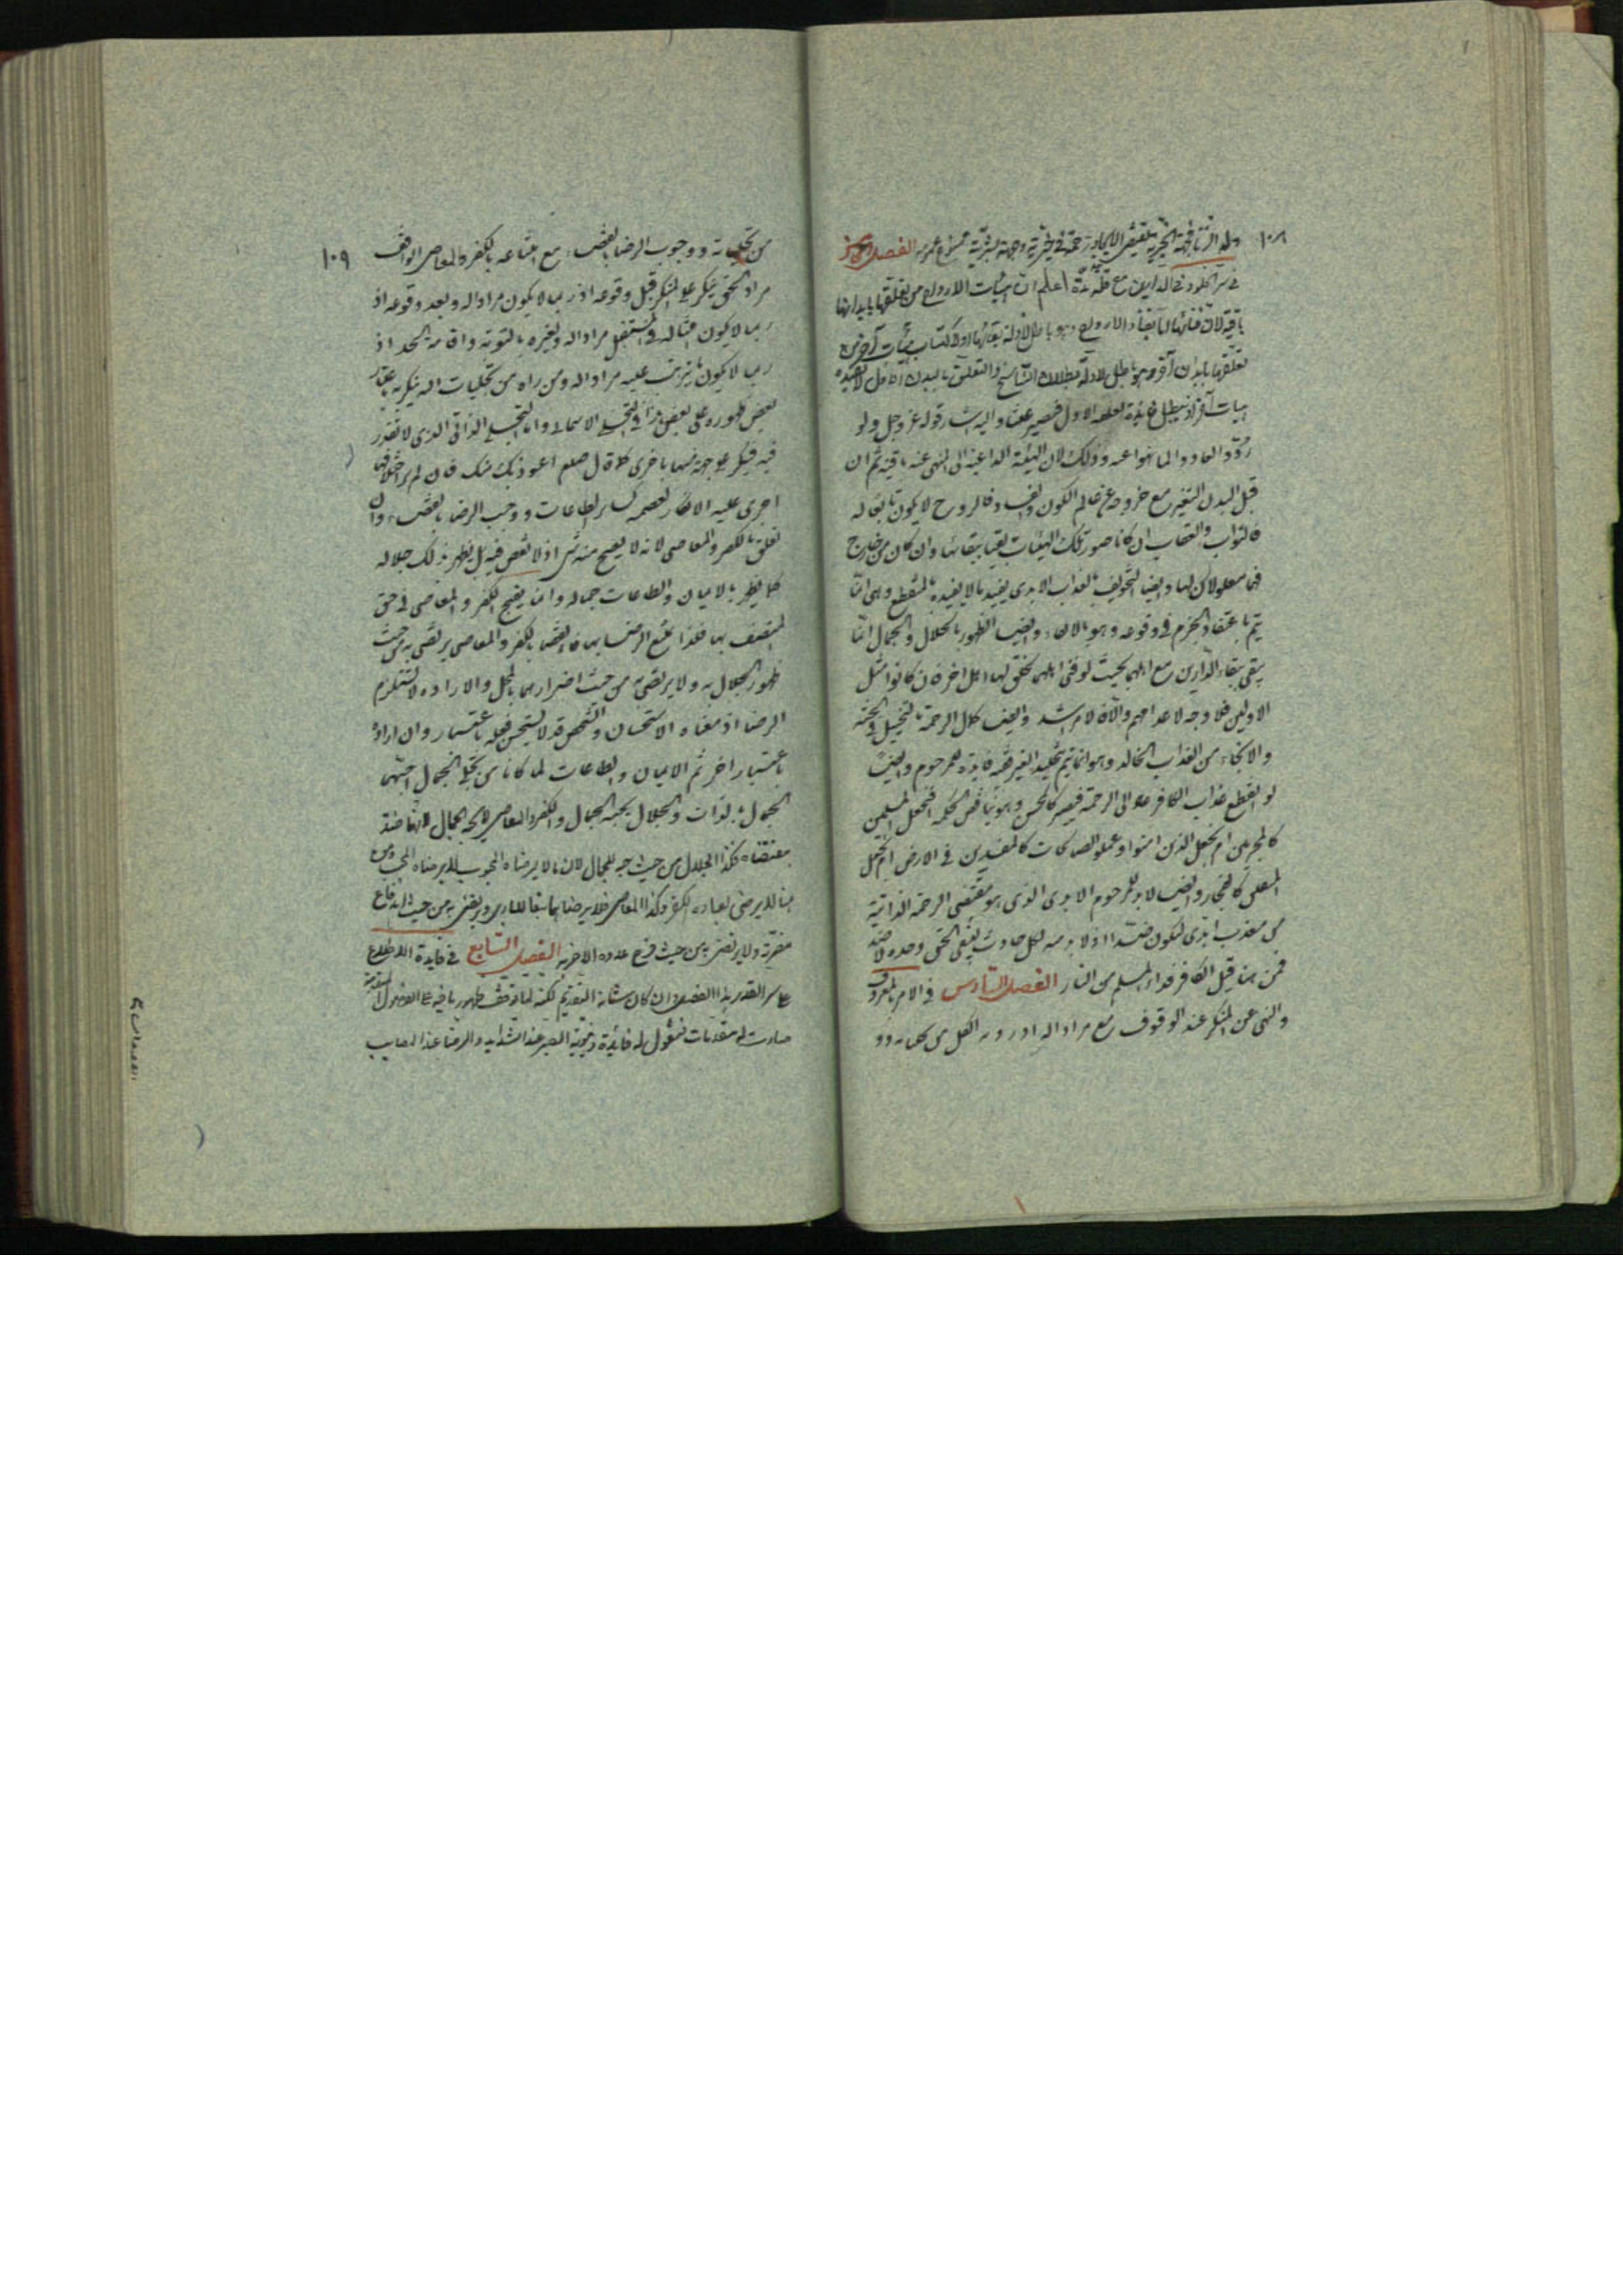 ١٠٨
الفصل الخامس
في سر الخلود في الدارين مع قلة مدة اعلم ان هيئات الارواح من تعلقها بابدانها
باقية لان فنائها اما بفناء الارواح وهو باطل لادلة بقائها او لاكتساب هيئات آخر من
تعلقها بابدان آخر وهو باطل لادلة بطلان التناسخ والتعلق بالبدن الاول لا يفيده
هيئات آخر اذ يبطل فائدة تعلقه الاول فيصير عبثا واليه اشار قوله عز وجل ولو
ردوا لعادوا لما نهوا عنه وذلك لان الهيئة الداعية الى المنهى عنه باقية ثم ان
قبل البدن التغير مع خروجه عن عالم الكون والفساد فالروح لا يكون تابعا له
فالثواب والعقاب ان كانا صور تلك الهيئات بقيا ببقائها وان كان من خارج
فهما معلولان لها وايضا التخويف بالعذاب الابدى يفيد ما لا يفيده المنقطع وهى انما
يتم باعتقاد الجزم في وقوعه وهو بالانباء وايضا الظهور بالجلال والجمال انما
يبقى ببقاء الدارين مع اهلهما بحيث لو فنى اهلهما لخلق لهما اهل اخر فان كانوا مثل
الاولين فلا وجه لاعدامهم والا فالاشد وايضا كمال الرحمة بالتخييل في الجنة
والانجاء من العذاب الخالد وهو انما يتم بتخليد الغير ففيه فايدة للمرحوم وايضا
لو انقطع عذاب الكافر عاد الى الرحمة فيصير كالمحسن وهو يناقض الحكمة افنجعل المسلمين
كالمجرمين ام نجعل الذين امنوا وعملوا الصالحات كالمفسدين في الارض ام نجعل
المتقين كالفجار وايضا لا بد للمرحوم الابدى الذى هو مقتضى الرحمة الذاتية
من معذب ابدى ليكون ضده اذ لا بد منه لكل حادث ليبقى الحق وحده لا ضد له
فمن هنا قيل الكافر فداء المسلم من النار الفصل السادس في الامر بالمعروف
والنهى عن المنكر عند الوقوف مع مراد الله
١٠٩
من تجلياته ووجوب الرضا بالقضاء مع امتناعه بالكفر والمعاصى الواقف
مراد الحق ينكر على المنكر قبل وقوعه اذ ربما لا يكون مراد الله وبعد وقوعه اذ
ربما لا يكون امثاله في المستقبل مراد الله وبغيره بالتوبة واقامة الحد اذ
ربما لا يكون ما يترتب عليه مراد الله ومن راه من تجليات اله ينكر به باعتبار
بعض ظهوره على بعض هذا في التجلى الاسمائى واما التجلى الذاتى الذى لا تعدد
فيه فينكر على جهة منها باخرى كما قال صلعم اعوذ بك منك فان لم ير اختلافا
اجرى عليه الانكار لعصمه كسائر الطاعات ووجب الرضا بالقضاء وان
تعلق بالكفر والمعاصى لانه لا يقبح منه شى اذ لا نقص فيه بل يظهر بذلك جلاله
كما يظهر بالايمان والطاعات جماله وانما يقبح الكفر والمعاصى في حق
المتصف بها فلذا يمتنع الرضا بها فالقضاء بالكفر والمعاصى يرتضى به من حيث
ظهور الجلال به ولا يرتضى به من حيث اضرارهما بالمحل والارادة لا تستلزم
الرضا اذ معناه الاستحسان والشخص قد لا يستحسن فعله باعتبار وان اراده
باعتبار اخر ثم الايمان والطاعات لما كانا من تجلى الجمال احبهما
الجمال بالذات والجلال بحبه الجمال والكفر والمعاصى لا يحبه الجمال لانها ضد
مقتضاه فكذا الجلال من حيث حبه للجمال لان ما لا يرضاه المحبوب لا يرضاه المحب ومن
هنا لا يرضى لعباده الكفر وكذا المعاصى فلا يرضا بها
مضرته ولا يرتضى به من حيث فرح عدوه الاخر به الفصل السابع في فايدة الاطلاع
على سر القدر هذا الفصل وان كان شانه التقديم لكنه لما توقف ظهور ما فيه على الفصول المتقدمة
صارت له مقدمات فنقول له فائدة دنيوية الصبر عند الشدايد والرضا عند المصايب